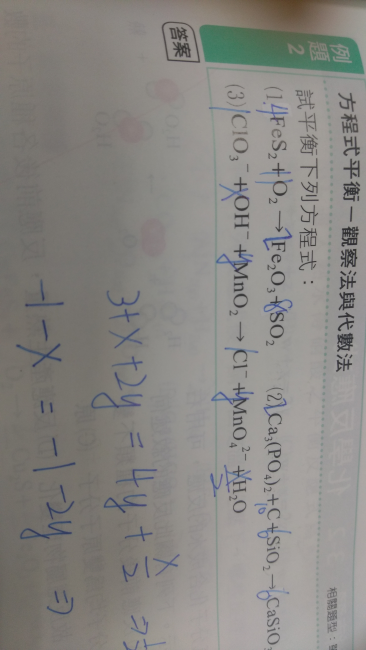 例題2
方程式平衡－觀察法與代數法
相關題型：
試平衡下列方程式：
(1)4FeS₂+11O₂→2Fe₂O₃+8SO₂ (2)2Ca₃(PO₄)₂+10C+6SiO₂→6CaSiO₃
(3)1ClO₃⁻+xOH⁻+yMnO₂→1Cl⁻+yMnO₄²⁻+x/2H₂O
答案
3+x+2y=4y+x/2⇒
-1-x=-1-2y⇒